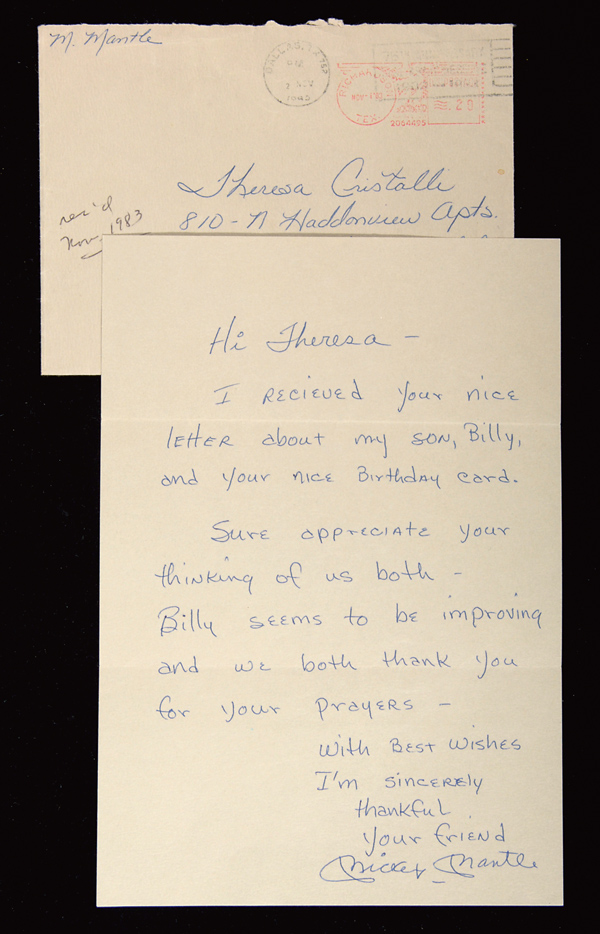 M. Mantle
DALLAS, TX
PM
NOV
TEX
.20
2064495
Theresa Cristalli
810-N Haddonview Apts.
rec'd
Nov. 1983
Hi Theresa –
I recieved your nice
letter about my son, Billy,
and your nice Birthday card.
Sure appreciate your
thinking of us both –
Billy seems to be improving
and we both thank you
for your prayers –
With Best Wishes
I'm sincerely
thankful.
Your friend
Mickey Mantle